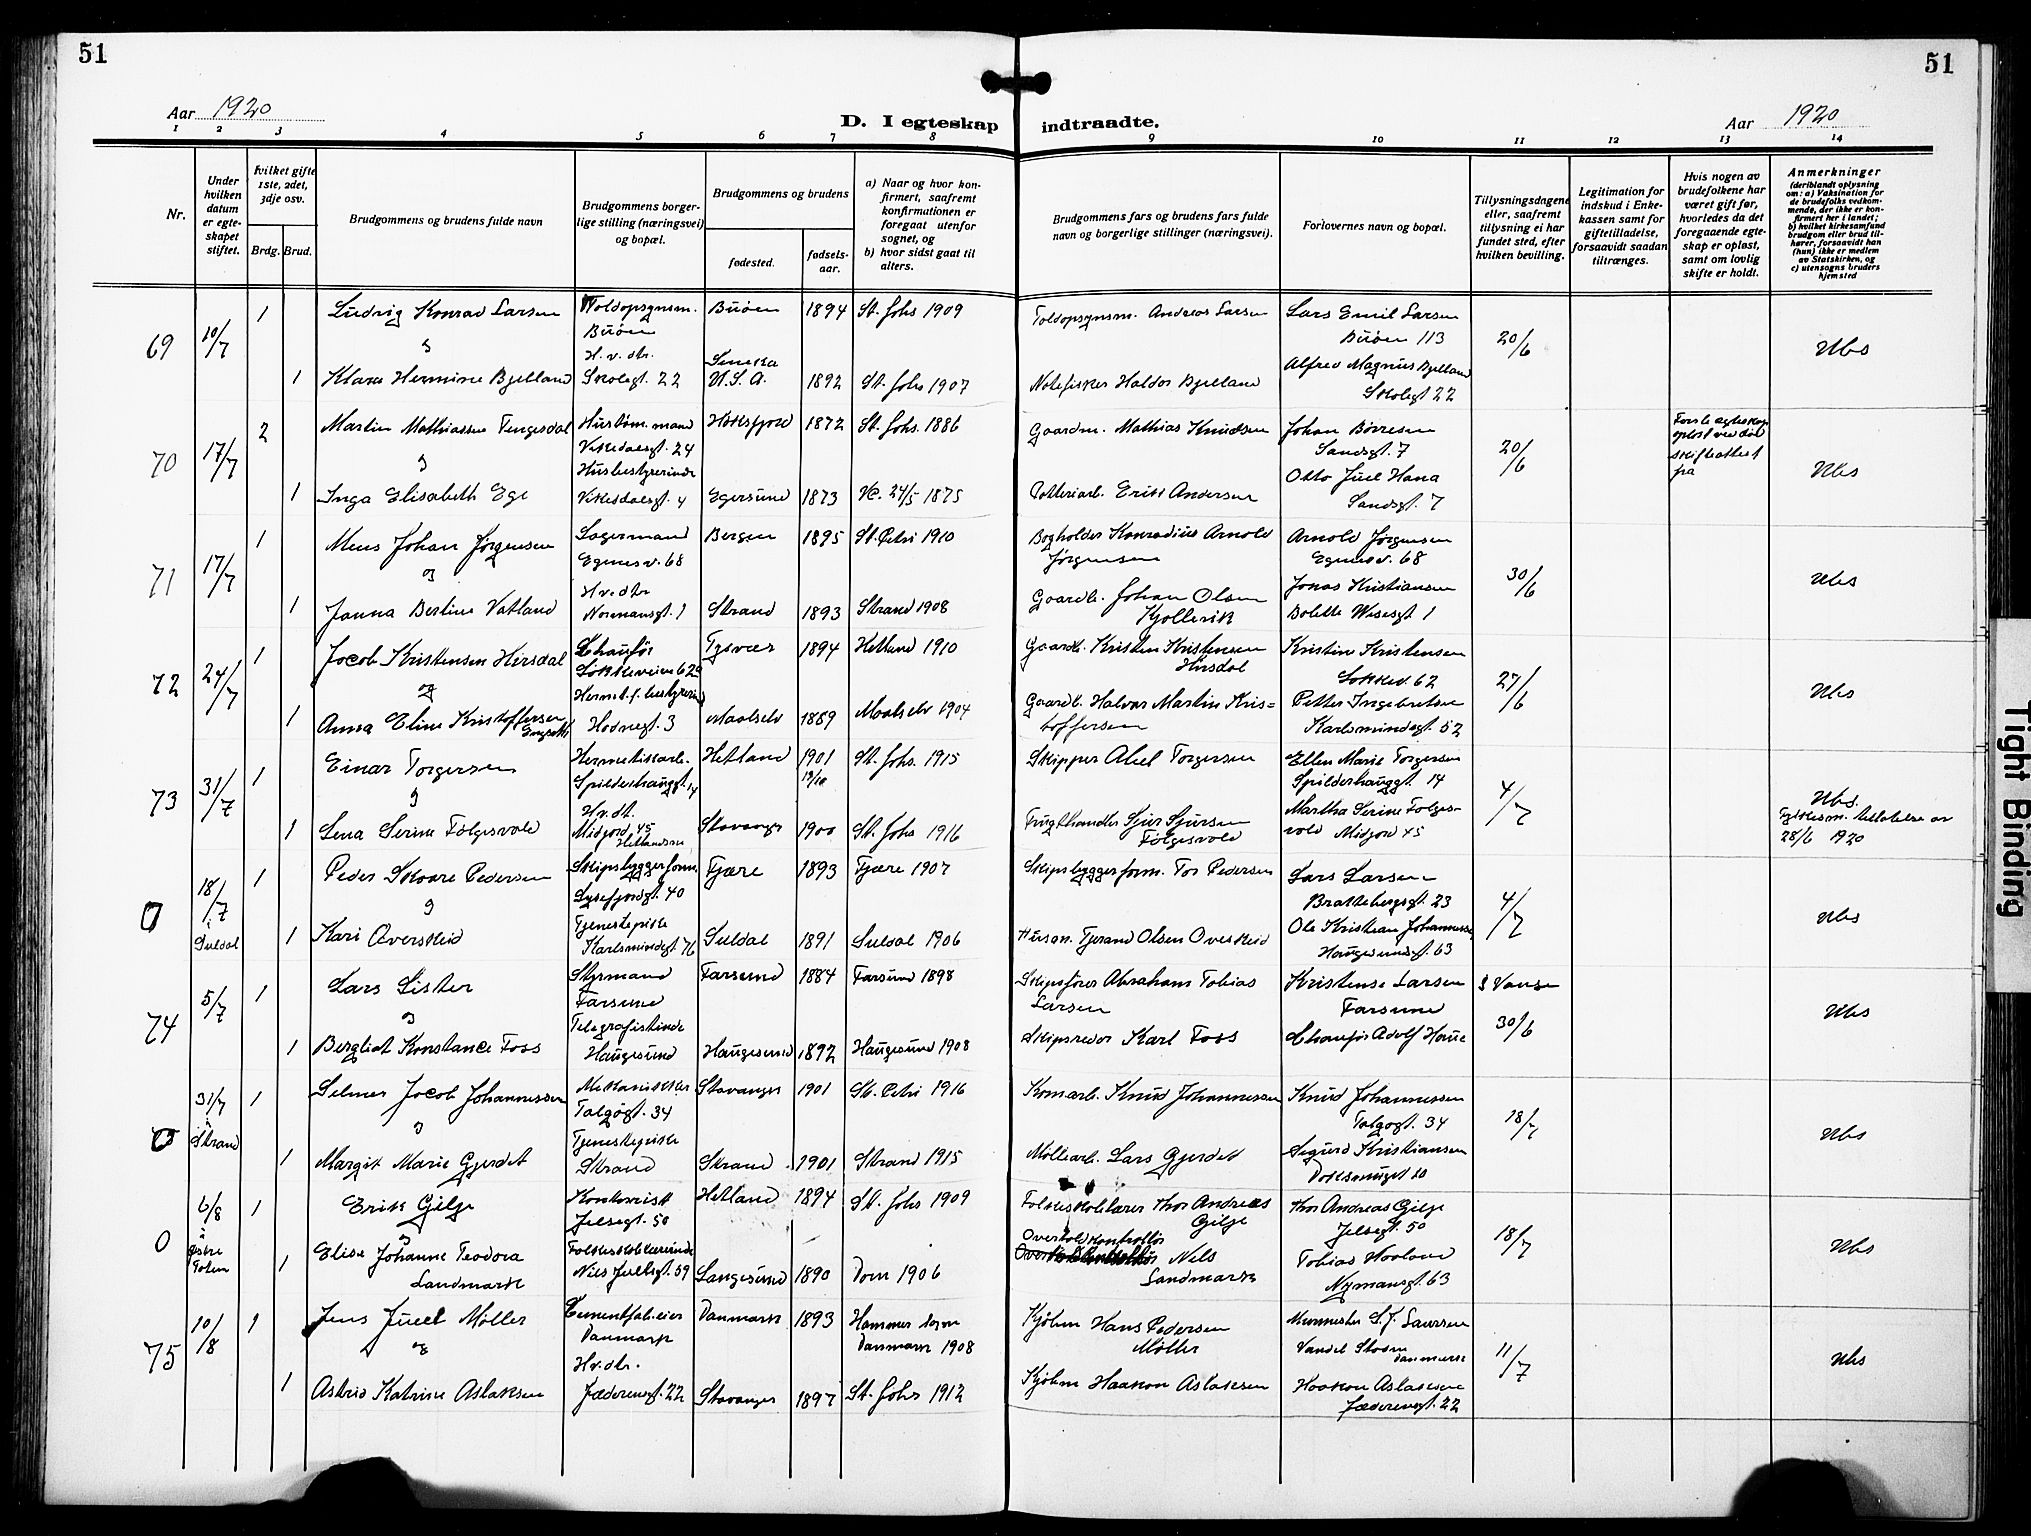 51
51
Aar 1920
D. I egteskap indtraadte.
Aar 1920
1 2 3 4 5 6 7 8 9 10 11 12 13 14
Nr.
Under hvilken datum er egteskapet stiftet.
hvilket gifte 1ste, 2det, 3dje osv.
Brdg. Brud.
Brudgommens og brudens fulde navn
Brudgommens borgerlige stilling (næringsvei) og bopæl.
Brudgommens og brudens
fødested.
fødselsaar.
a) Naar og hvor konfirmert, saafremt konfirmationen er foregaat utenfor sognet, og
b) hvor sidst gaat til alters.
Brudgommens fars og brudens fars fulde navn og borgerlige stillinger (næringsvei).
Forlovernes navn og bopæl.
Tillysningsdagene eller, saafremt tillysning ei har fundet sted, efter hvilken bevilling.
Legitimation for indskud i Enkekassen samt for giftetilladelse, forsaavidt saadan tiltrænges.
Hvis nogen av brudefolkene har været gift før, hvorledes da det foregaaende egteskap er opløst, samt om lovlig skifte er holdt.
Anmerkninger
(deriblandt oplysning om: a) Vaksination for de brudefolks vedkommende, der ikke er konfirmert her i landet; b) hvilket kirkesamfund brudgom eller brud tilhører, forsaavidt han (hun) ikke er medlem av Statskirken, og c) utensogns bruders hjemsted
69 10/7 1 Ludvig Konrad Larsen Toldopsynsm. Buøen Buøen 1894 St. Johs 1909 Toldopsynsm. Andreas Larsen Lars Emil Larsen Buøen 113 20/6 Ubs
og
1 Klara Hermine Bjelland H. v. dtr. Skolegt. 22 U.S.A. 1892 St. Johs 1907 Notefisker Haldor Bjelland Alfred Magnus Bjelland Skolegt 22
70 17/7 2 Martin Mathiassen Tengesdal Vikedalsgt. 24 1872 St. Johs. 1886 Gaardm. Mathias Knudsen Johan Børresen Sandsgt. 7 20/6 Første egteskap opløst ved død skifteattest frå Ubs
og
1 Inga Elisabeth Ege Husbestyrerinde Vikedalsgt. 4 Egersund 1873 Ve. 24/5 1875 Potteriarb. Erik Andersen Otto Juel Hana Sandsgt. 7
71 17/7 1 Mons Johan Jørgensen Lagermand Egenesv. 68 Bergen 1895 St. Petri 1910 Bogholder Konradius Arnold Jørgensen Arnold Jørgensen Egenesv. 68 30/6 Ubs
og
1 Janna Bertine Vatland H.v.dtr Normansgt. 1 Strand 1893 Strand 1908 Gaardb. Johan Olsen Kjollevik Jonas Kristiansen Bolette Wisesgt 1
72 24/7 1 Jacob Kristensen Hirsdal Chauffør Tysvær 1894 Hetland 1910 Gaardb. Kristen Kristensen Hirsdal Kristin Kristensen Løkkev. 62 27/6 Ubs
og
1 Anna Eline Kristoffersen Hodnegt. 3 Maalselv 1889 Maalselv 1904 Gaardb. Halvor Martin Kristoffersen Petter Ingebretsen Karlsmindegt 52
73 31/7 1 Einar Torgersen Hermetikarb. Spilderhauggt. 14 Hetland 1901 St. Johs. 1915 Skipper Abel Torgersen Ellen Marie Torgersen Spilderhauggt. 14 4/7 Ubs.
og
1 Lena Serine Følgesvold Hv. dt. Midjord 45 Hetland Stavanger 1900 St. Johs 1916 Frugthandler Sjur Sjursen Følgesvold Martha Serine Følgesvold Midjord 45 28/6 1920
0 18/7 i Suldal 1 Peder Skaare Pedersen Skipsbyggerform. Lysefjordgt. 40 Tjære 1893 Tjære 1907 Skipsbyggerform. Tor Pedersen Lars Larsen Brattebergsgt. 23 4/7 Ubs
og
1 Kari Overskeid Tjenestepike Karlsmindegt 76 Suldal 1891 Suldal 1906 Husm. Tjerand Olsen Overskeid Ole Kristian Johannessen Haugesundsgt. 63
74 5/7 1 Lars Lister Styrmand Farsund Farsund 1884 Farsund 1898 Skipsfører Abraham Tobias Larsen Kristense Larsen Farsund 30/6 Ubs
og
1 Bergliot Konstance Foss Telegrafistinde Haugesund Haugesund 1892 Haugesund 1908 Skipsreder Karl Foss Chaufør Adolf Haue
0 31/7 i Strand 1 Selmer Jacob Johannessen Talgøgt. 34 Stavanger 1901 St. Petri 1916 Komarb. Knud Johannessen Knud Johannessen Talgøgt. 34 18/7 Ubs
og
1 Margit Marie Gjerdet Tjenestepike Strand Strand 1901 Strand 1915 Møllearb. Lars Gjerdet Sigurd Kristiansen
0 6/8 i Østre Toten 1 Erik Gilje Kontorist Jelsegt. 50 Hetland 1894 St. Johs 1909 Folkeskolelærer Thor Andreas Gilje Thor Andreas Gilje Jelsegt. 50 18/7 Ubs
og
1 Elise Johanne Teodora Landmark Folkeskolelærerinde Niels Juelsgt. 59 Langesund 1890 Dom 1906 Overtoldkontrollør Nels Landmark Tobias Haaland Nymansgt. 63
75 10/8 1 Jens Juell Møller Cementfab.eier Danmark Danmark 1893 Hammer sogn Danmark 1908 Kjøbm Hans Pedersen Møller 11/7 Ubs
og
1 Astrid Katrine Aslaksen Hv. dtr. Jæderensgt. 22 Stavanger 1897 St. Johs 1912 Kjøbm Haakon Aslaksen Haakon Aslaksen Jæderensgt. 22
Tight Binding